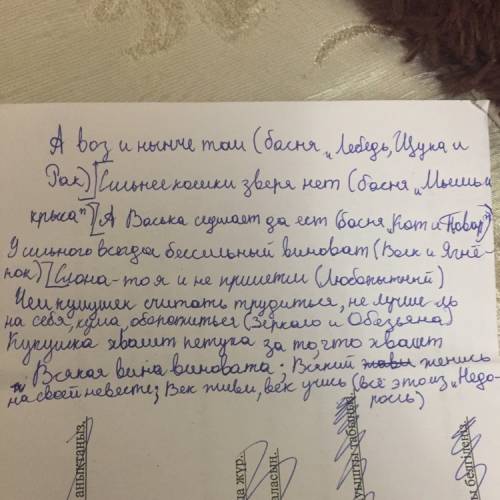 А воз и нынче там (басня „Лебедь, Щука и
Рак) [Сильнее кошки зверя нет (басня „Мышь и
крыса“ [А Васька слушает да ест (басня „Кот и Повар“)
У сильного всегда бессильный виноват (Волк и Ягнё-
нок) [Слона-то я и не приметил (Любопытный)
Чем кумушек считать трудиться, не лучше ль
на себя, кума, оборотиться (Зеркало и Обезьяна)
Кукушка хвалит петуха за то, что хвалит
Всякая вина виновата; Всякий женись
на своей невесте; Век живи, век учись (всё это из „Недо-
росль)
анықтаңыз.
да жүр..
аласың..
ауышты табыңыз.
ы белгілеңіз.